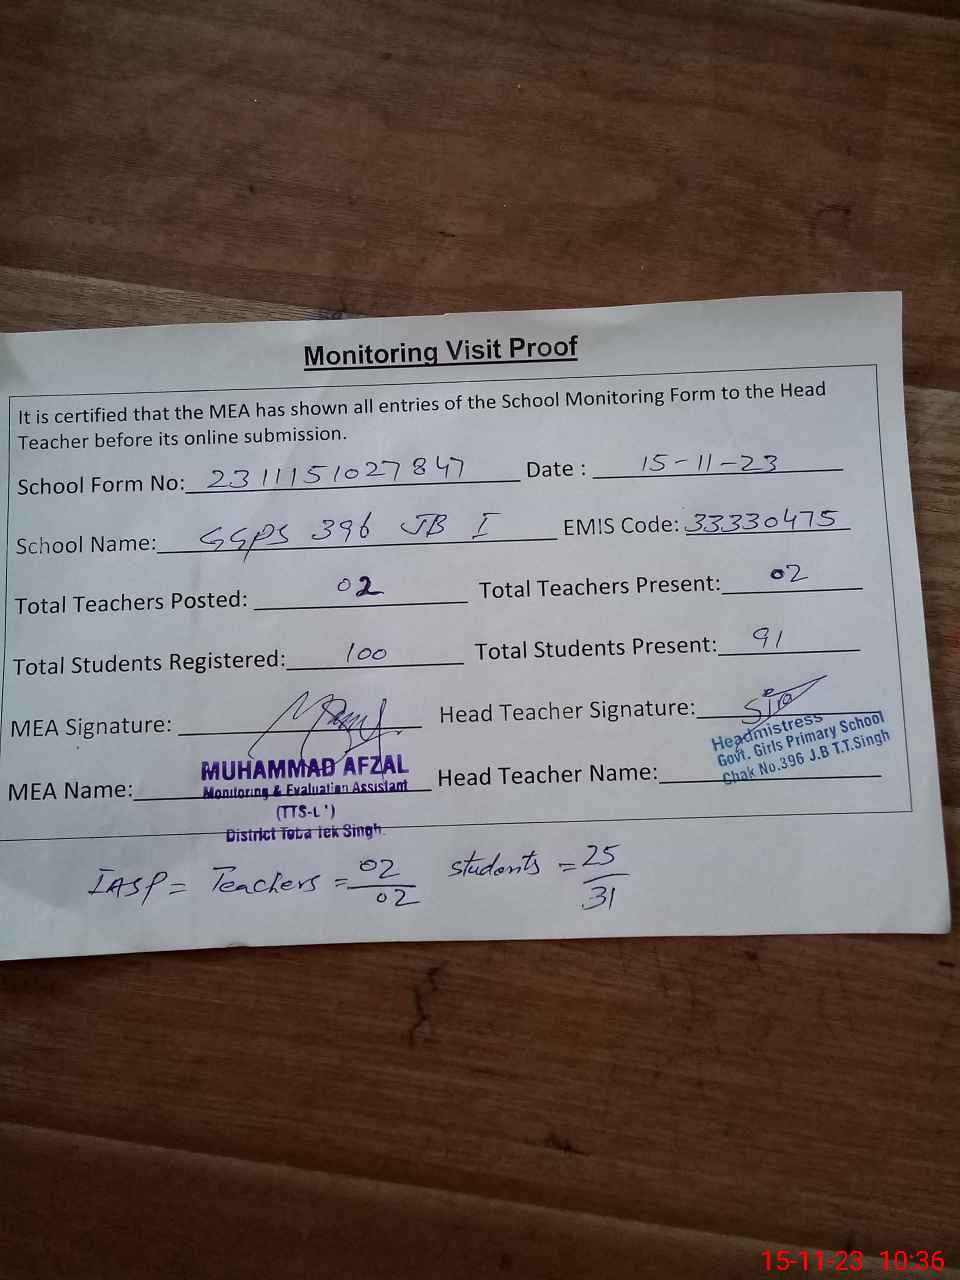 Monitoring Visit Proof
It is certified that the MEA has shown all entries of the School Monitoring Form to the Head
Teacher before its online submission.
School Form No: 2311151027847 Date : 15-11-23
School Name: GGPS 396 JB I EMIS Code: 33330475
Total Teachers Posted: 02 Total Teachers Present: 02
Total Students Registered: 100 Total Students Present: 91
MEA Signature: Head Teacher Signature:
MEA Name: MUHAMMAD AFZAL
Monitoring & Evaluation Assistant
District Toba Tek Singh.
Head Teacher Name:
Headmistress
Govt. Girls Primary School
Chak No.396 J.B T.T.Singh
IASP = Teachers = 02/02 students = 25/31
15-11-23 10:36